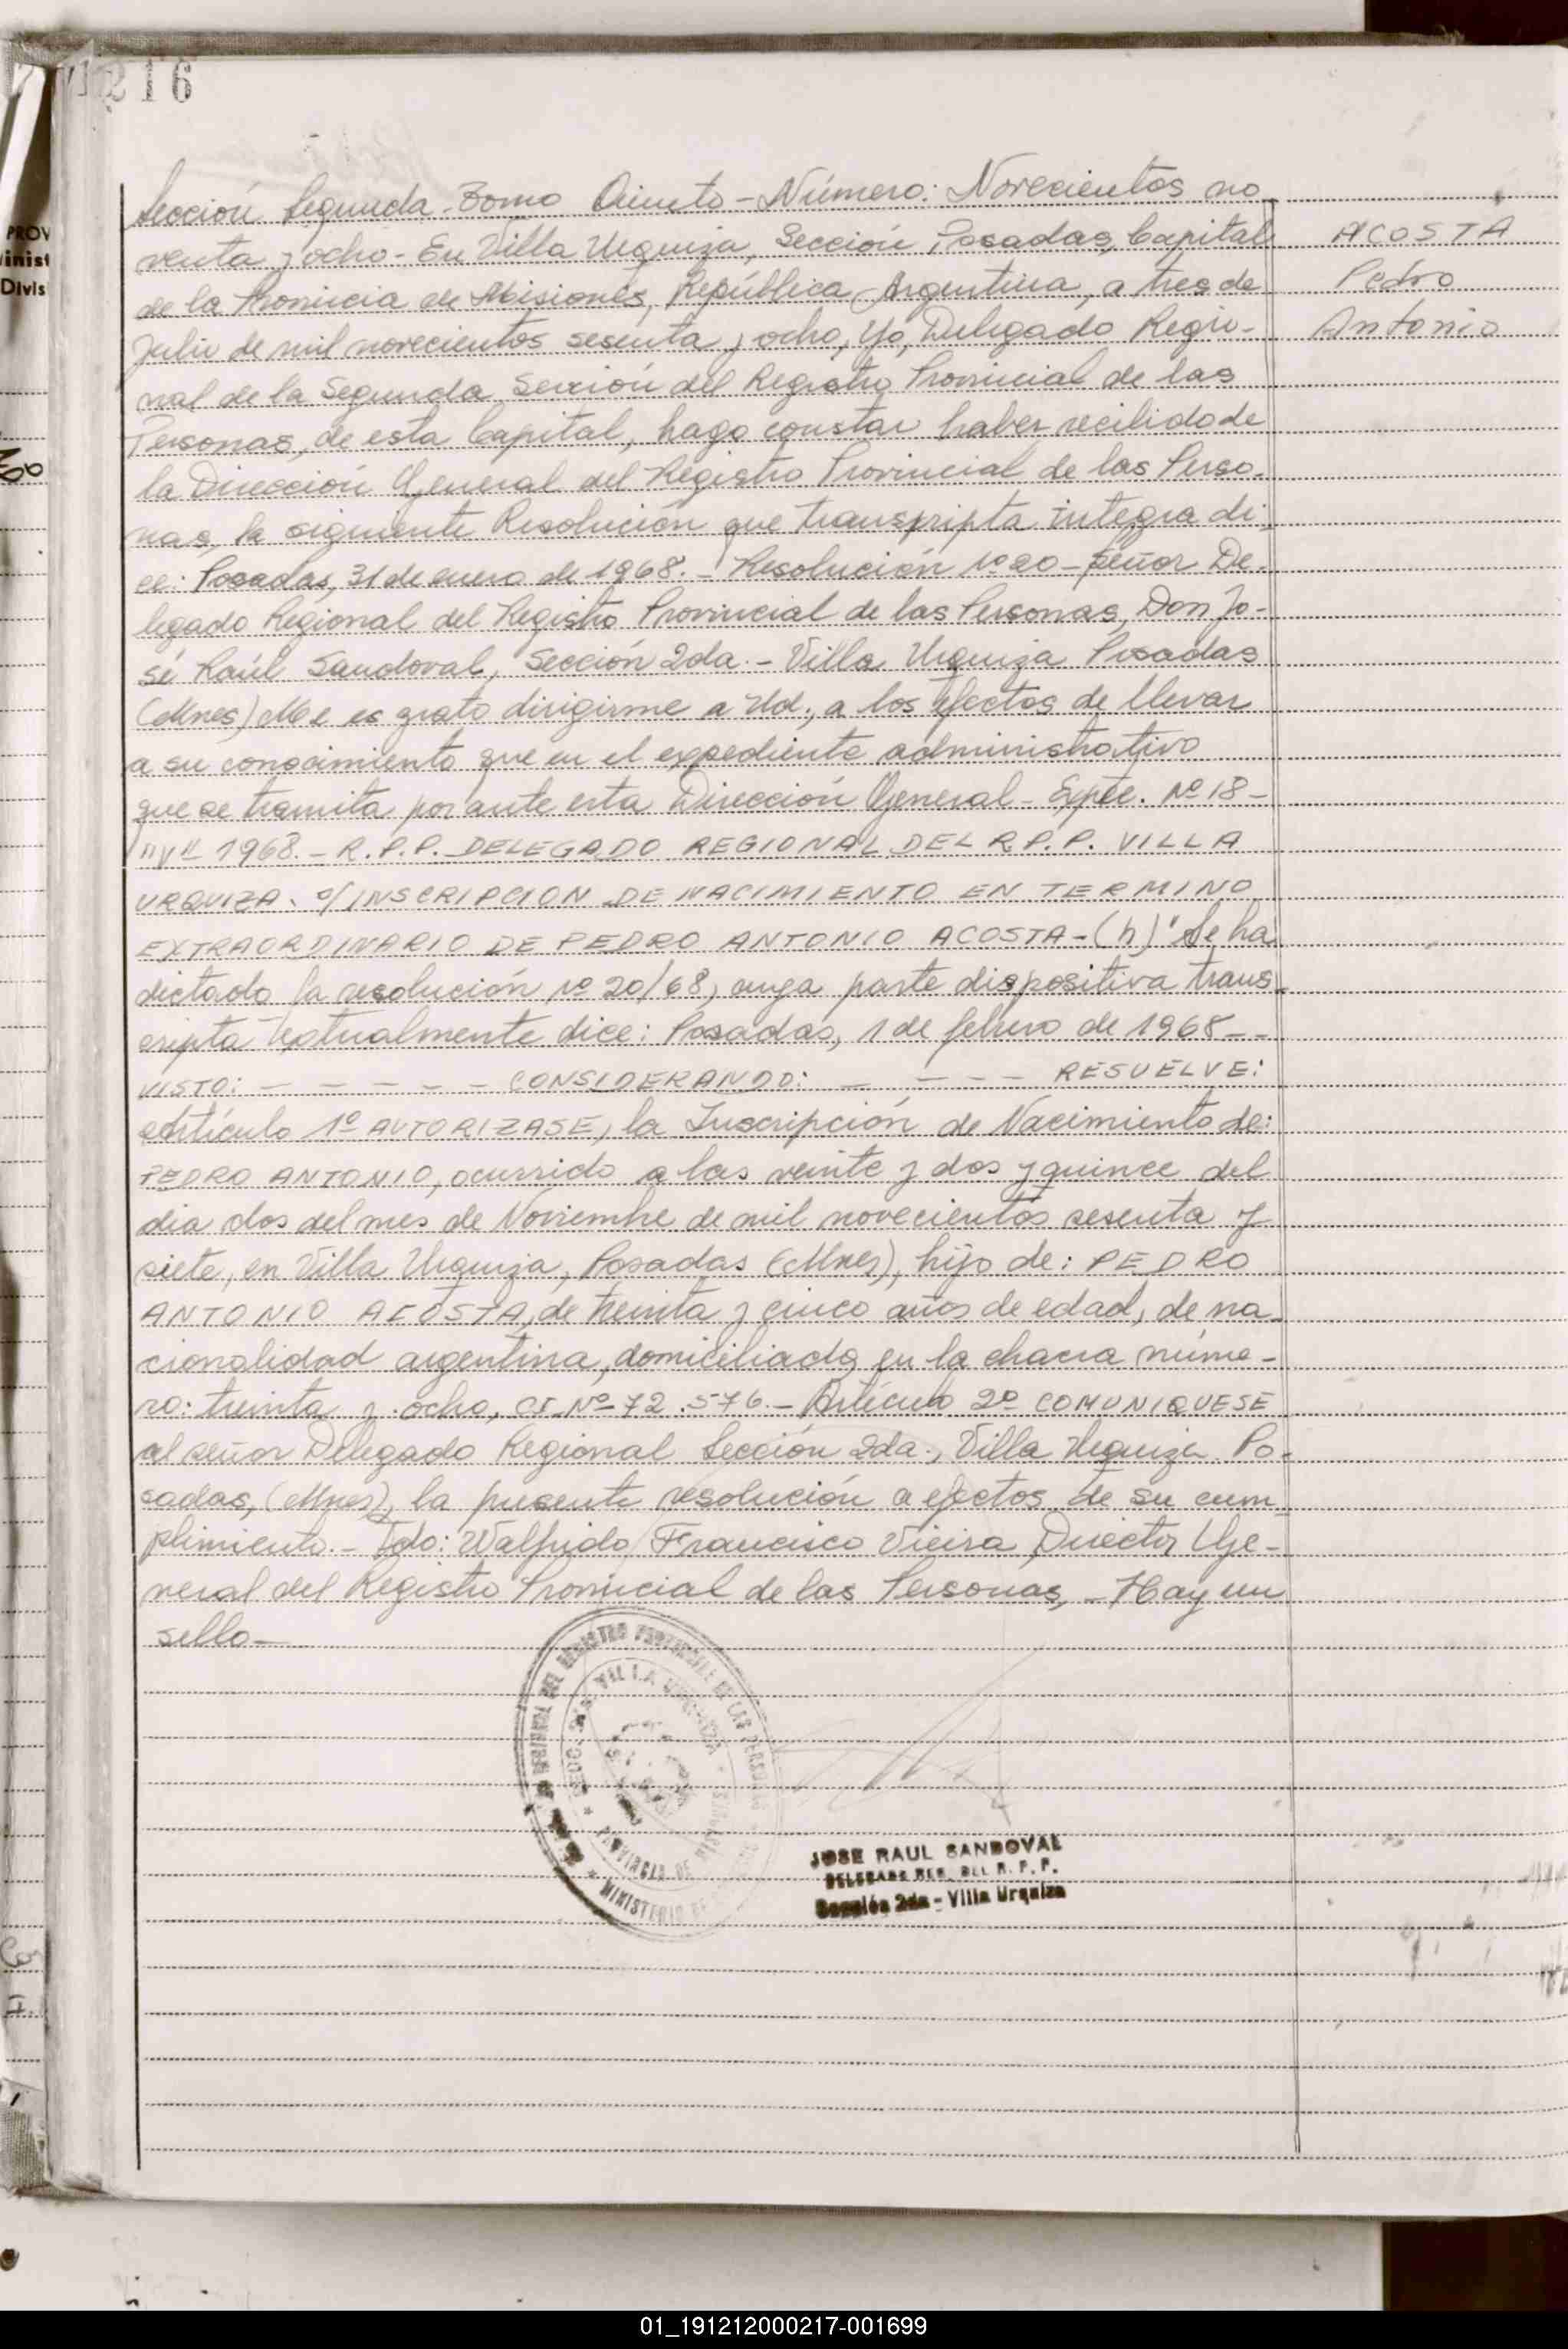 216
Sección Segunda - Tomo Quinto - Número: Novecientos no
venta y ocho - En Villa Urquiza, Sección, Posadas, Capital
de la Provincia de Misiones, República Argentina, a tres de
Julio de mil novecientos sesenta y ocho, Yo, Delegado Regio-
nal de la Segunda Sección del Registro Provincial de las
Personas, de esta Capital, hago constar haber recibido de
la Dirección General del Registro Provincial de las Perso-
nas, la siguiente Resolución que transpripta integra di-
ce: Posadas, 31 de enero de 1968. - Resolución nº 20 - Señor De-
legado Regional del Registro Provincial de las Personas, Don Jo-
sé Raúl Sandoval, Sección 2da. - Villa Urquiza Posadas
(Mnes) Me es grato dirigirme a Ud., a los efectos de llevar
a su conocimiento que en el expediente administrativo
que se tramita por ante esta Dirección General - Expte. Nº 18 -
"V" 1968. - R.P.P. DELEGADO REGIONAL DEL R.P.P. VILLA
URQUIZA. s/INSCRIPCION DE NACIMIENTO EN TERMINO
EXTRAORDINARIO DE PEDRO ANTONIO ACOSTA - (h)" Se ha
dictado la resolución nº 20/68, cuya parte dispositiva trans-
cripta textualmente dice: Posadas, 1 de febrero de 1968 - -
VISTO: - - - - - CONSIDERANDO: - - - - RESUELVE:
Artículo 1º AUTORIZASE, la Inscripción de Nacimiento de:
PEDRO ANTONIO, ocurrido a las veinte y dos y quince del
dia dos del mes de Noviembre de mil novecientos sesenta y
siete, en Villa Urquiza, Posadas (Mnes), hijo de: PEDRO
ANTONIO ACOSTA, de treinta y cinco años de edad, de na-
cionalidad argentina, domiciliado en la chacra núme-
ro: treinta y ocho, CI. Nº 72.576. - Artículo 2º COMUNIQUESE
al señor Delegado Regional Sección 2da., Villa Urquiza Po-
sadas, (Mnes), la presente resolución a efectos de su cum-
plimiento. - Fdo: Walfrido Francisco Vieira Director Ge-
neral del Registro Provincial de las Personas, - Hay un
sello -
ACOSTA
Pedro
Antonio
DEL REGISTRO PROVINCIAL DE LAS PERSONAS
VILLA URQUIZA
PROVINCIA DE
MINISTERIO DE
JOSE RAUL SANDOVAL
DELEGADO REG. DEL R. P. P.
Sección 2da - Villa Urquiza
PROV
inist
Divis
01_191212000217-001699